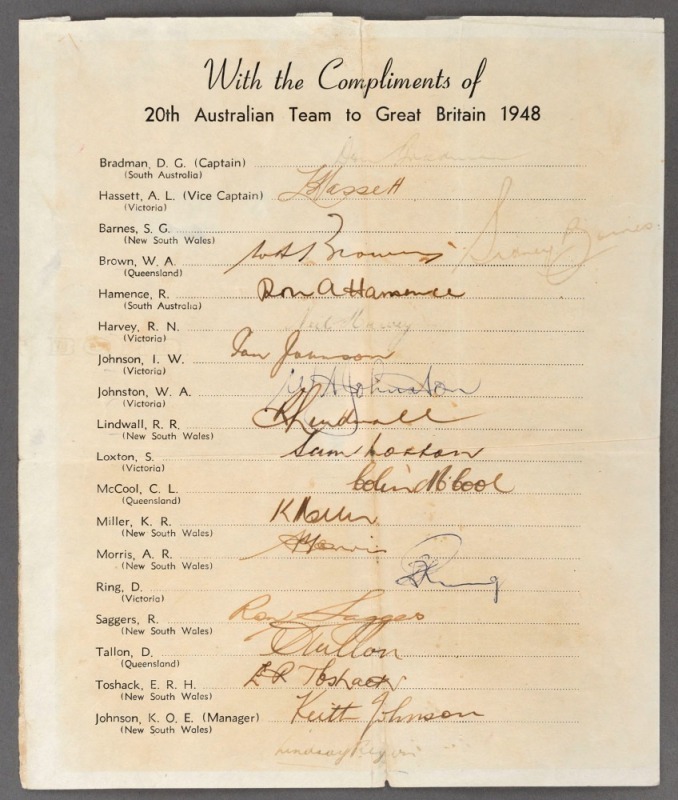 With the Compliments of
20th Australian Team to Great Britain 1948
Bradman, D. G. (Captain) Don Bradman
(South Australia)
Hassett, A. L. (Vice Captain) L Hassett
(Victoria)
Barnes, S. G. Sidney Barnes
(New South Wales)
Brown, W. A. W A Brown
(Queensland)
Hamence, R. Ron A Hamence
(South Australia)
Harvey, R. N. Neil Harvey
(Victoria)
Johnson, I. W. Ian Johnson
(Victoria)
Johnston, W. A. W A Johnston
(Victoria)
Lindwall, R. R. R Lindwall
(New South Wales)
Loxton, S. Sam Loxton
(Victoria)
McCool, C. L. Colin McCool
(Queensland)
Miller, K. R. K Miller
(New South Wales)
Morris, A. R. A Morris
(New South Wales)
Ring, D. D Ring
(Victoria)
Saggers, R. Ron Saggers
(New South Wales)
Tallon, D. D Tallon
(Queensland)
Toshack, E. R. H. E R Toshack
(New South Wales)
Johnson, K. O. E. (Manager) Keith Johnson
(New South Wales)
Lindsay